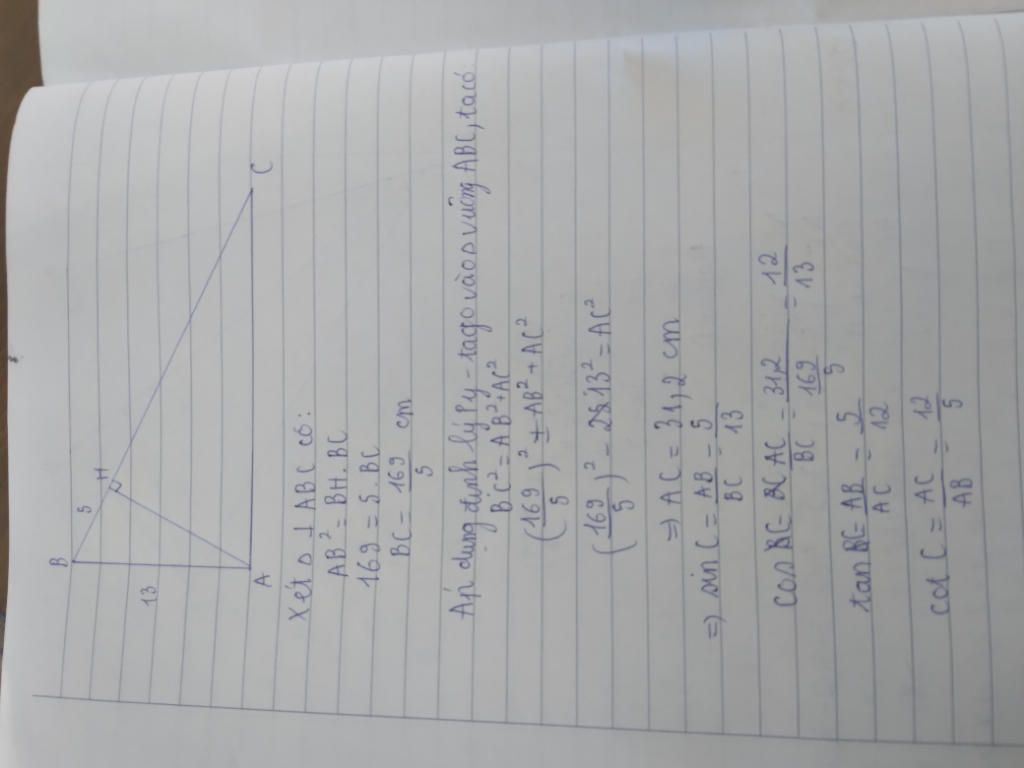 B
5
H
13
A
C
Xét △ ⊥ ABC có:
AB² = BH . BC
169 = 5 . BC
BC = 169/5 cm
Áp dụng định lý Py-tago vào △ vuông ABC, ta có:
BC² = AB² + AC²
(169/5)² = AB² + AC²
(169/5)² - 13² = AC²
=> AC = 31,2 cm
=> sin C = AB/BC = 5/13
cos C = AC/BC = 31,2/(169/5) = 12/13
tan C = AB/AC = 5/12
cot C = AC/AB = 12/5